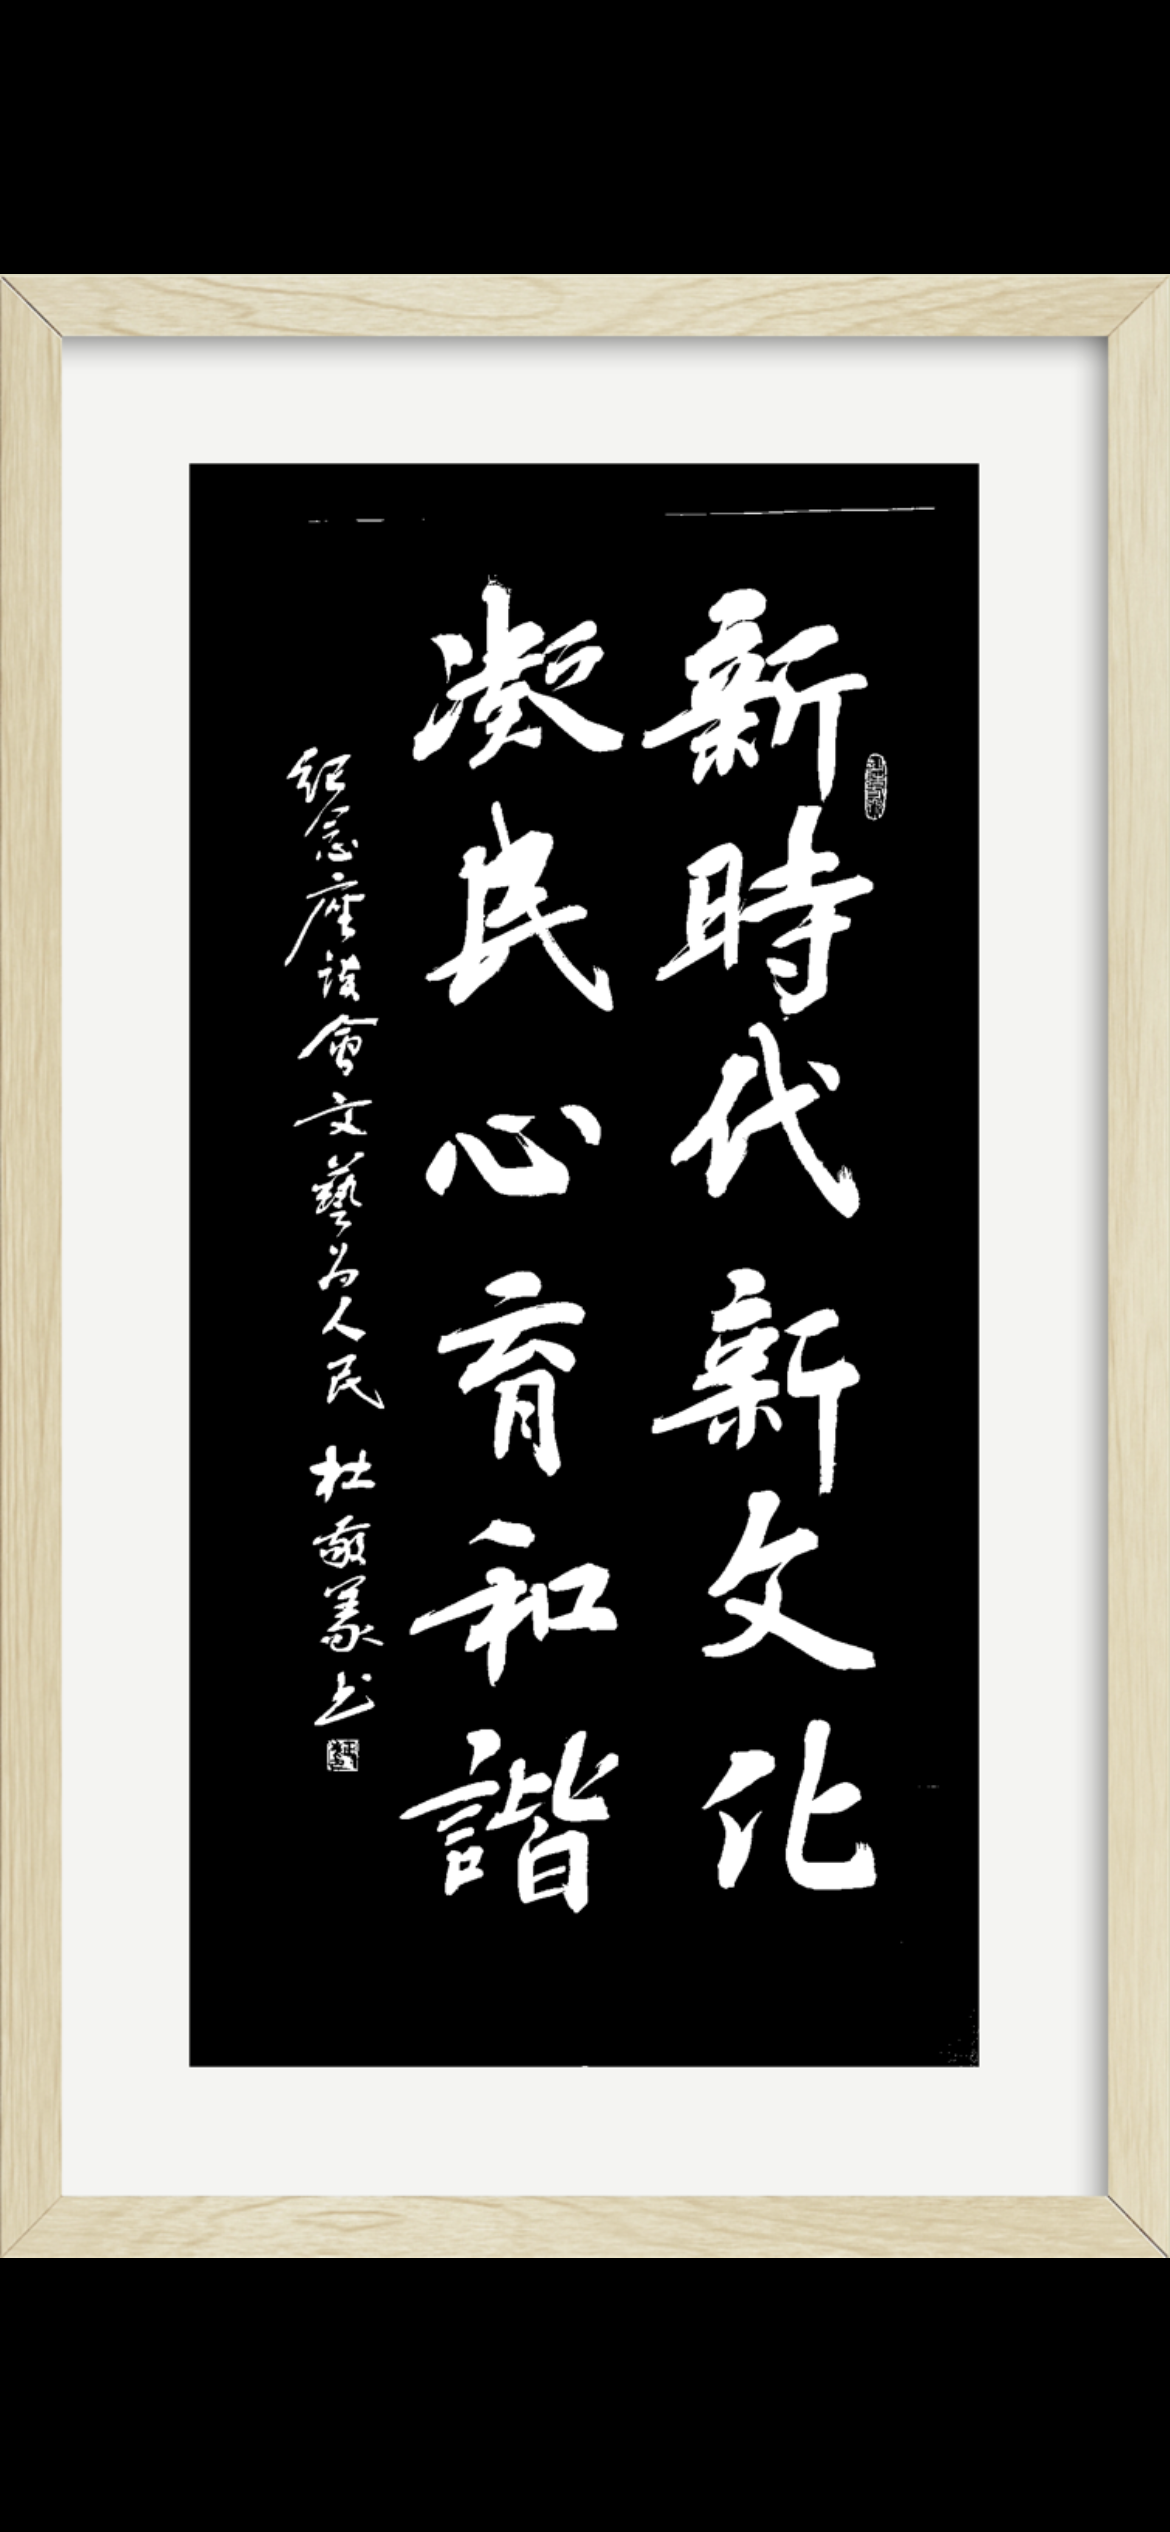 新時代新文化
凝民心育和諧
纪念座谈會文藝为人民 杜敬義书